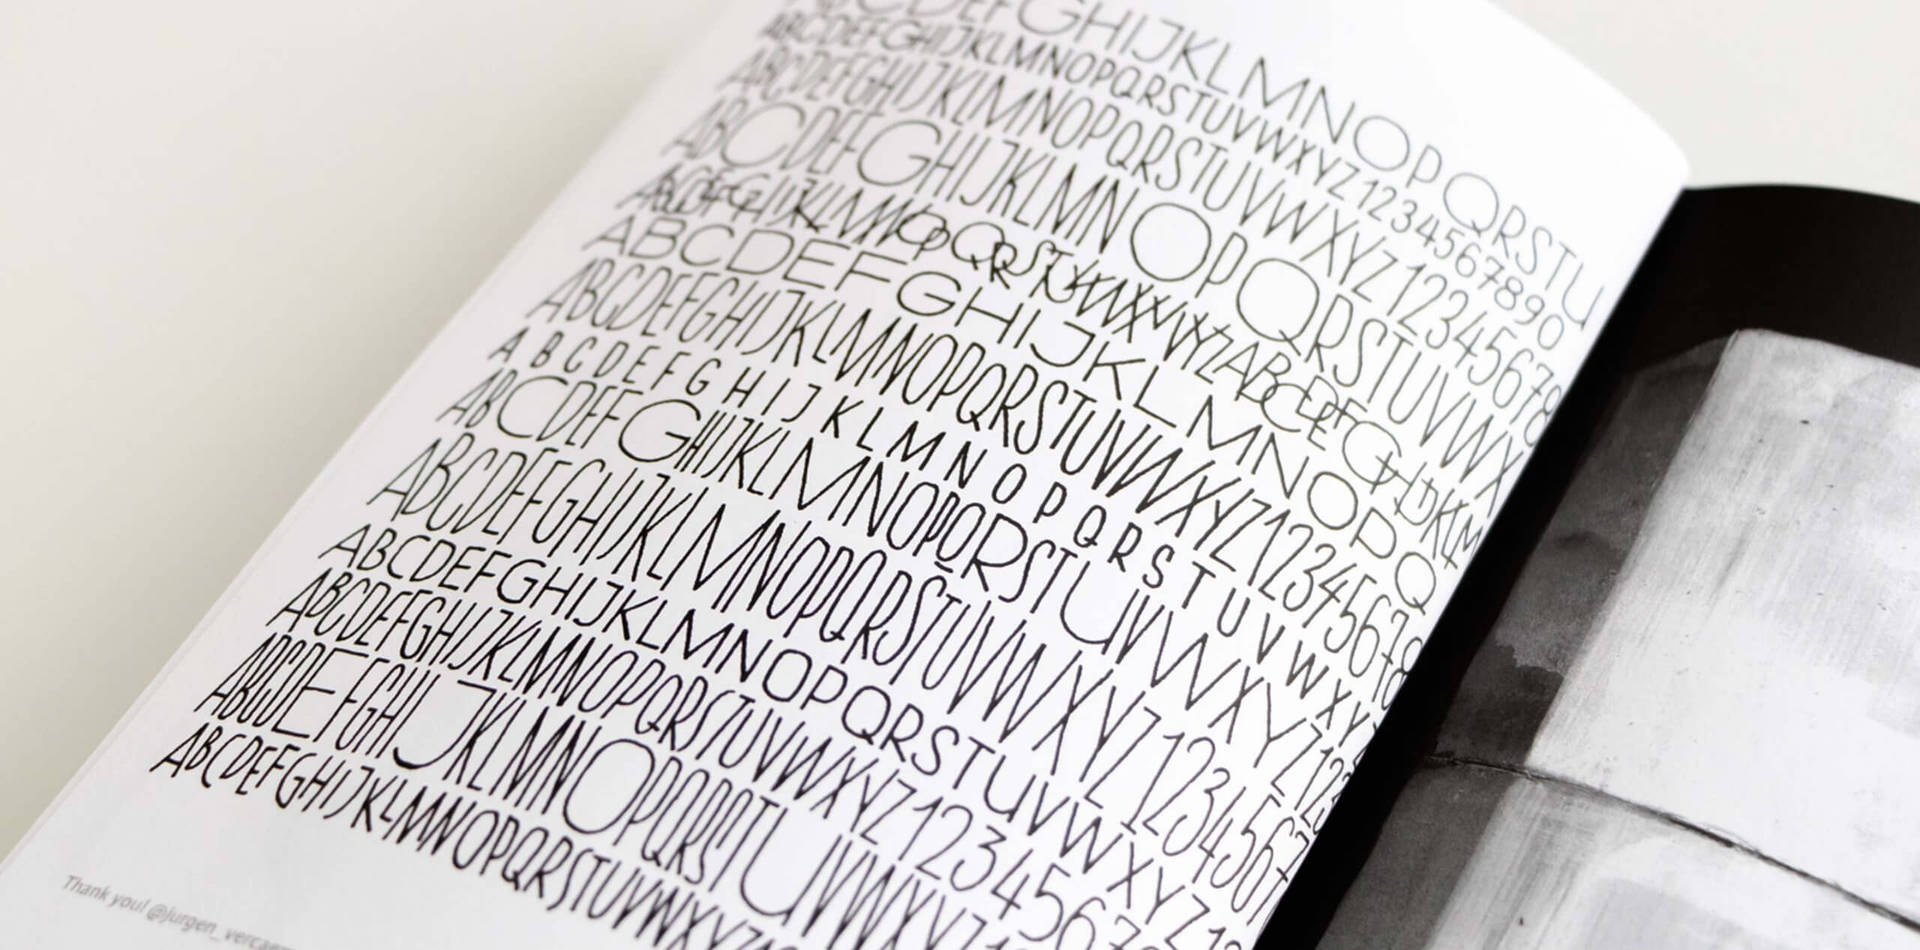 CDEFGHIJKLMNOPQRSTU
ABCDEFGHIJKLMNOPQRSTUVWXYZ1234567890
ABCDEFGHIJKLMNOPQRSTUVWXYZ12345678
ABCDEFGHIJKLMNOPQRSTUVWX
ABCDEFGHIJKLMNOPQRSTUVWXYZABCDEFGHIJKLM
ABCDEFGHIJKLMNOPQ
ABCDEFGHIJKLMNOPQRSTUVWXYZ12345678
A B C D E F G H I J K L M N O P Q R S T U V W X Y
ABCDEFGHIJKLMNOPQRSTUVWXYZ123
ABCDEFGHIJKLMNOPQRSTUVWXYZ1234567
ABCDEFGHIJKLMNOPQRSTUVWXYZ1
ABCDEFGHIJKLMNOPQRSTUVWXYZ1234567
ABCDEFGHIJKLMNOPQRSTUVWXYZ1
ABCDEFGHIJKLMNOPQRSTUVWXYZ
Thank you! @Jurgen_verca